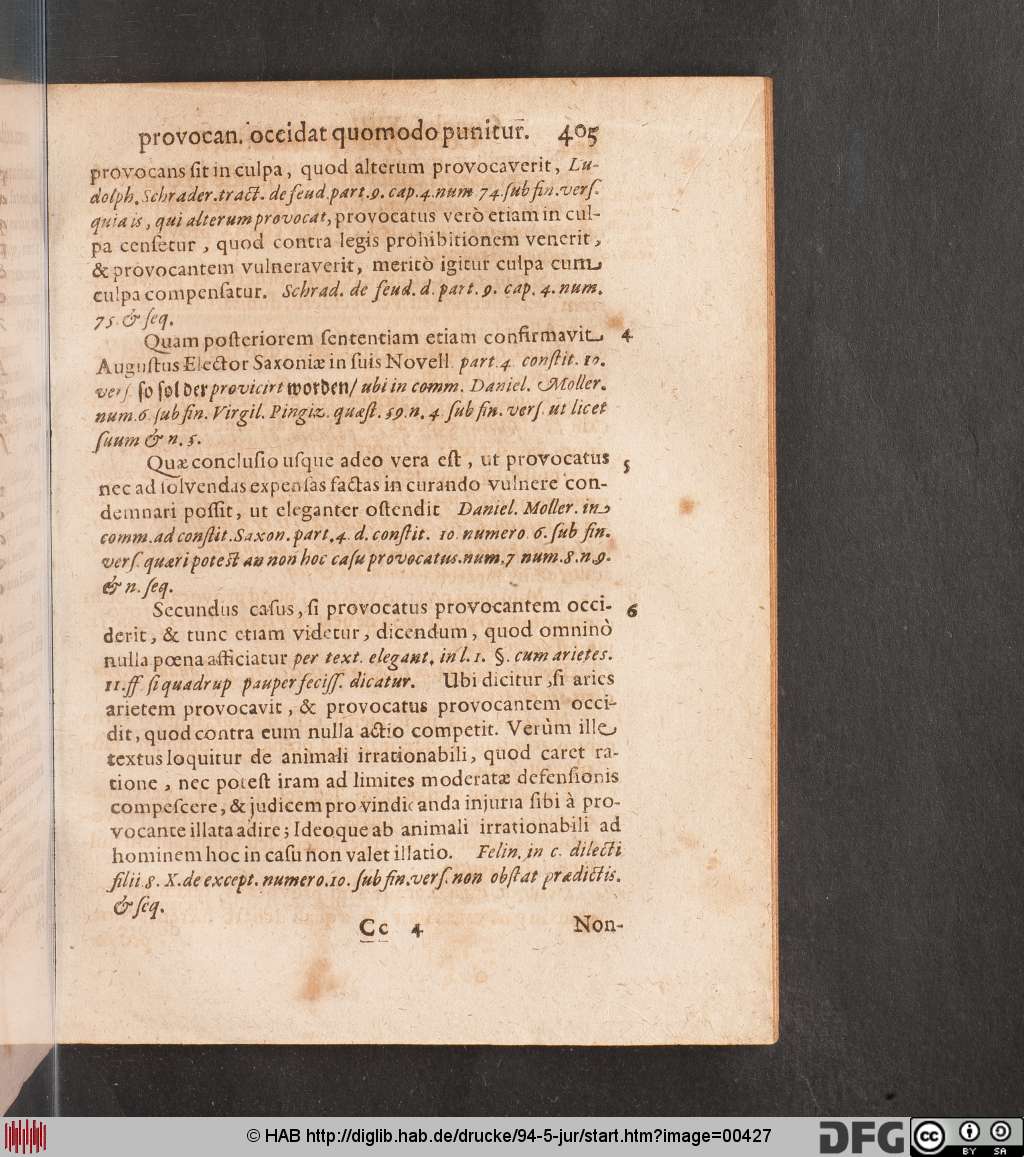 provocan. occidat quomodo punitur. 405
provocans sit in culpa, quod alterum provocaverit, Lu-
dolph. Schrader. tract. de feud. part. 9. cap. 4. num 74. sub fin. vers.
quia is, qui alterum provocat, provocatus verò etiam in cul-
pa censetur, quod contra legis prohibitionem venerit,
& provocantem vulneraverit, meritò igitur culpa cum
culpa compensatur. Schrad. de feud. d. part. 9. cap. 4. num.
75. & seq.
Quam posteriorem sententiam etiam confirmavit 4
Augustus Elector Saxoniæ in suis Novell. part. 4. constit. 10.
vers. so sol der provicirt worden/ ubi in comm. Daniel. Moller.
num. 6. sub fin. Virgil. Pingiz. quæst. 59. n. 4. sub fin. vers. ut licet
suum & n. 5.
Quæ conclusio usque adeo vera est, ut provocatus 5
nec ad solvendas expensas factas in curando vulnere con-
demnari possit, ut eleganter ostendit Daniel. Moller. in
comm. ad constit. Saxon. part. 4. d. constit. 10. numero. 6. sub fin.
vers. quæri potest an non hoc casu provocatus. num. 7 num. 8. n. 9.
& n. seq.
Secundus casus, si provocatus provocantem occi- 6
derit, & tunc etiam videtur, dicendum, quod omninò
nulla pœna afficiatur per text. elegant. in l. 1. §. cum arietes.
11. ff. si quadrup pauper feciss. dicatur. Ubi dicitur, si aries
arietem provocavit, & provocatus provocantem occi-
dit, quod contra eum nulla actio competit. Verùm ille
textus loquitur de animali irrationabili, quod caret ra-
tione, nec potest iram ad limites moderatæ defensionis
compescere, & judicem pro vindicanda injuria sibi à pro-
vocante illata adire; Ideoque ab animali irrationabili ad
hominem hoc in casu non valet illatio. Felin. in c. dilecti
filii 8. X. de except. numero. 10. sub fin. vers. non obstat prædictis.
& seq.
Cc 4 Non-
© HAB http://diglib.hab.de/drucke/94-5-jur/start.htm?image=00427
DFG
cc BY SA